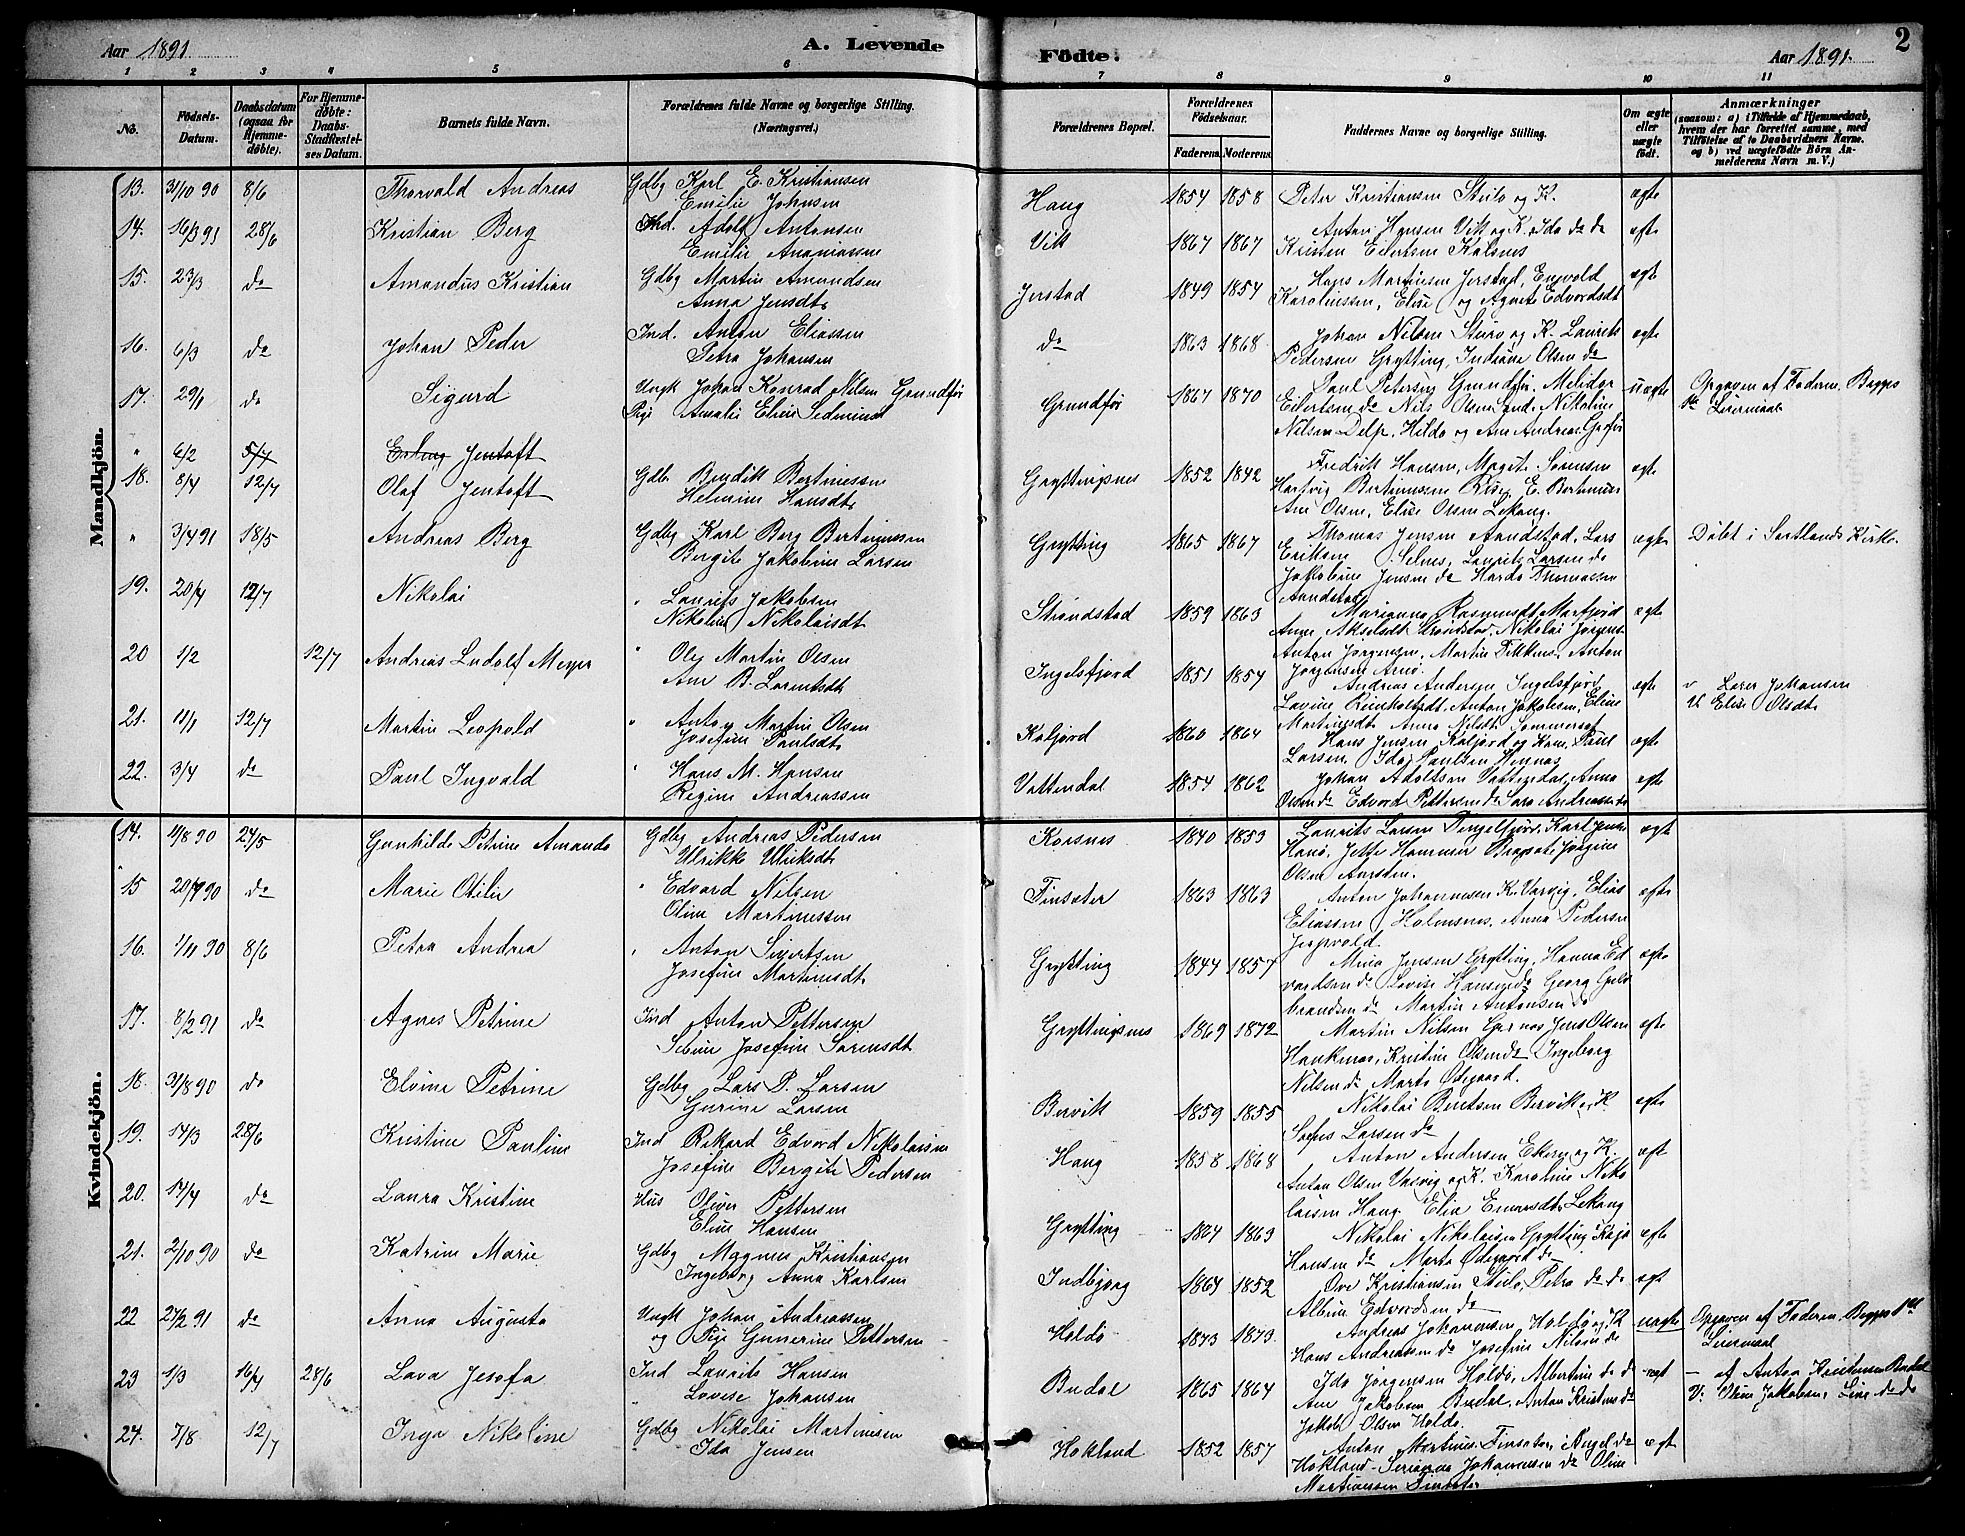 Aar 1891
A. Levende
Födte.
Aar 1891.
2
1 2 3 4 5 6 7 8 9 10 11
No.
Födsels-Datum.
Daabsdatum (ogsaa for Hjemme-döbte).
For Hjemme-döbte: Daabs-Stadfæstel-ses Datum.
Barnets fulde Navn.
Forældrenes fulde Navne og borgerlige Stilling. (Næringsvei.)
Forældrenes Bopæl.
Forældrenes Födselsaar.
Faderens Moderens
Faddernes Navne og borgerlige Stilling.
Om ægte eller uægte födt.
Anmærkninger (saasom: a) i Tilfælde af Hjemmedaab, hvem der har forrettet samme, med Tilföielse af to Daabsvidners Navne, og b) ved uægtefödte Börn An-melderens Navn m. V.)
Mandkjön.
13. 31/10 90 8/6 Thorvald Andreas Gdbg Karl E. Kristiansen Haug 1854 1858 Peter Kristiansen Stilo og K. ægte
Emelie Johnsen
14. 16/3 91 28/6 Kristian Berg Ind. Adolf Antonsen Vik 1867 1867 Anton Hansen Vik og K. Ida do do ægte
Emelie Ananiassen Kristen Eilertsen Kalsnes
15. 23/3 do Amandus Kristian Gdbg Martin Amundsen Jerstad 1849 1854 Hans Martinsen Jerstad, Engvold ægte
Anna Jensdt. Karolinssen, Elise og Agnete Edvardsdt
16. 6/3 do Johan Peder Ind. Anton Eliassen do 1863 1868 Johan Nilsen Sturo og K. Laurits ægte
Petra Johansen Pedersen Grytting, Indiane Olsen do
17. 29/1 do Sigurd Ungk Johan Konrad Nilsen Grundfør Grundfør 1867 1870 Paul Petersen Grundfør, Melidor uægte Opgaven af Faderen. Begges
Pige Amalie Eline Eilertsen do Nils Olsen Sand. Nikoline 1ste Leiermaal
Nilsen Delp, Hilda og Ane Andreas.
" 6/2 5/7 Erling Jentoft
18. 8/4 12/7 Olaf Jentoft Gdb. Bendik Bertinussen Gryttingsnes 1852 1842 Fredrik Hansen, Magit Sørensen ægte
Helmine Hansdt. Hartvig Bertinussen Risø, E. Bertinus
Ane Olsen, Elise Olsen Lekang.
" 3/4 91 18/5 Andreas Berg Gdbg Karl Berg Bertinussen Grytting 1865 1867 Thomas Jensen Aandstad, Lars ægte Døbt i Sortlands Kirke.
Bergite Jakobine Larsen Eriksen Selnes, Laurits Larsen do
Jakobine Jensen do Harda Thomassen
Aandstad
19. 20/4 12/7 Nikolai " Laurits Jakobsen Strandstad 1859 1863 Mariane Rasmusdt Marfjord ægte
Nikoline Nikolaisdt Anne Akselsdt Strandstad, Nikolai Jørgens
Anton Jørgensen, Martin Anton
Jørgensen Arnø.
20 1/2 12/7 Andreas Ludolf Meyer " Ole Martin Olsen Ingelsfjord 1851 1854 Andreas Andersen Ingelsfjord ægte v Lærer Johansen
Ane B. Larentsdt Lavine Reinholtsdt, Anton Jakobsen, Eline V. Elise Olsdt.
Martinsdt Anna Nilsdt Sommerset
21. 11/1 12/7 Martin Leopold " Anton Martin Olsen Kaljord 1860 1864 Hans Jensen Kaljord og Kone, Paul ægte
Josefine Paulsdt. Larsen, Ida Paulsen Hennes
22. 3/4 do Paul Ingvald " Hans M. Hansen Vattendal 1854 1862 Johan Adolfsen Vattendal, Anna ægte
Regine Andreassen Olsen do Edvard Pettersen do Sara Andreassen do
Kvindekjön.
14. 11/8 90 24/5 Gunhilde Petrine Amanda Gdbg Andreas Pedersen Korsnes 1840 1853 Laurits Larsen Karl Jens ægte
Ulrikke Ulriksdt. Hanø, Jette Hammer Jørgine
Olsen Aarsten.
15 20/7 90 do Marie Otilie " Edvard Nilsen Finsæter 1863 1863 Anton Johannesen K. Varvig, Elias ægte
Oline Martinussen Eliassen Holmsnes, Anna Pedersen
16. 1/11 90 8/6 Petra Andrea " Anton Sivertsen Grytting 1844 1857 Mina Jensen Grytting, Hanna Ed ægte
Josefine Martinusdt. vardsen do Lovise Hansen do Georg Guld
brandsen do Martin Antonsen do
17. 8/2 91 do Agnes Petrine Ind Anton Pettersen Gryttingsnes 1869 1872 Martin Nilsen Jens Olsen ægte
Josefine Sørensdt Haukenes, Kristine Olsen do Ingeborg
Nilsen do Marta Ødegaard.
18. 31/8 90 do Elvine Petrine Gdbg Lars P. Larsen Bervik 1859 1855 Nikolai Bentsen Bervik, K. ægte
Gurine Larsen Sofus Larsen do
19. 14/3 28/6 Kristine Pauline Ind Rikard Edvard Nikolaisen Haug 1858 1868 Anton Andersen og K. ægt
Josefine Bergite Pedersen Anton Olsen Varvig og K. Karoline Niko
laisen Haug. Elen Lekang
20. 14/4 do Laura Kristine Hus Oliver Pettersen Grytting 1864 1863 Nikolai Nikolaisen Grytting, Kaja ægte
Eline Hansen Hansen do Marta Ødegaard do
21. 2/10 90 do Katrine Marie Gdbg Magnus Kristiansen Indbjorg 1864 1852 Ove Kristiansen Stilo, Petra do do ægt
Ingeborg Anna Karlsen Albine Edvardsen do
22 27/2 91 do Anna Augusta Ungk Johan Andreassen Holdø 1873 1873. Andreas Johannesen Holdø og K uægte Opgaven af Faderen. Begges 1ste
og Pige Gunerine Pettersen Hans Andreassen do Josefine Nilsen do Leiermaal
23 1/3 16/4 28/6 Lava Josefa Ind Laurits Hansen Budal 1865 1864 Ida Jørgensen Holdø, Albertine do do ægt – af Anton Kristensen Budal
Lovise Johansen Ane Jakobsen Budal, Anton Kristens do V: Oline Jakobsen, Line do do
Jakob Olsen Holdø.
24. 7/8 12/7 Inga Nikoline Gdbg Nikolai Martinsen Hokland 1852 1857 Anton Martinus. Finsæter, do ægt
Ida Jensen Hokland Serianna Johannesen do Oline
Martinusen Finsæter